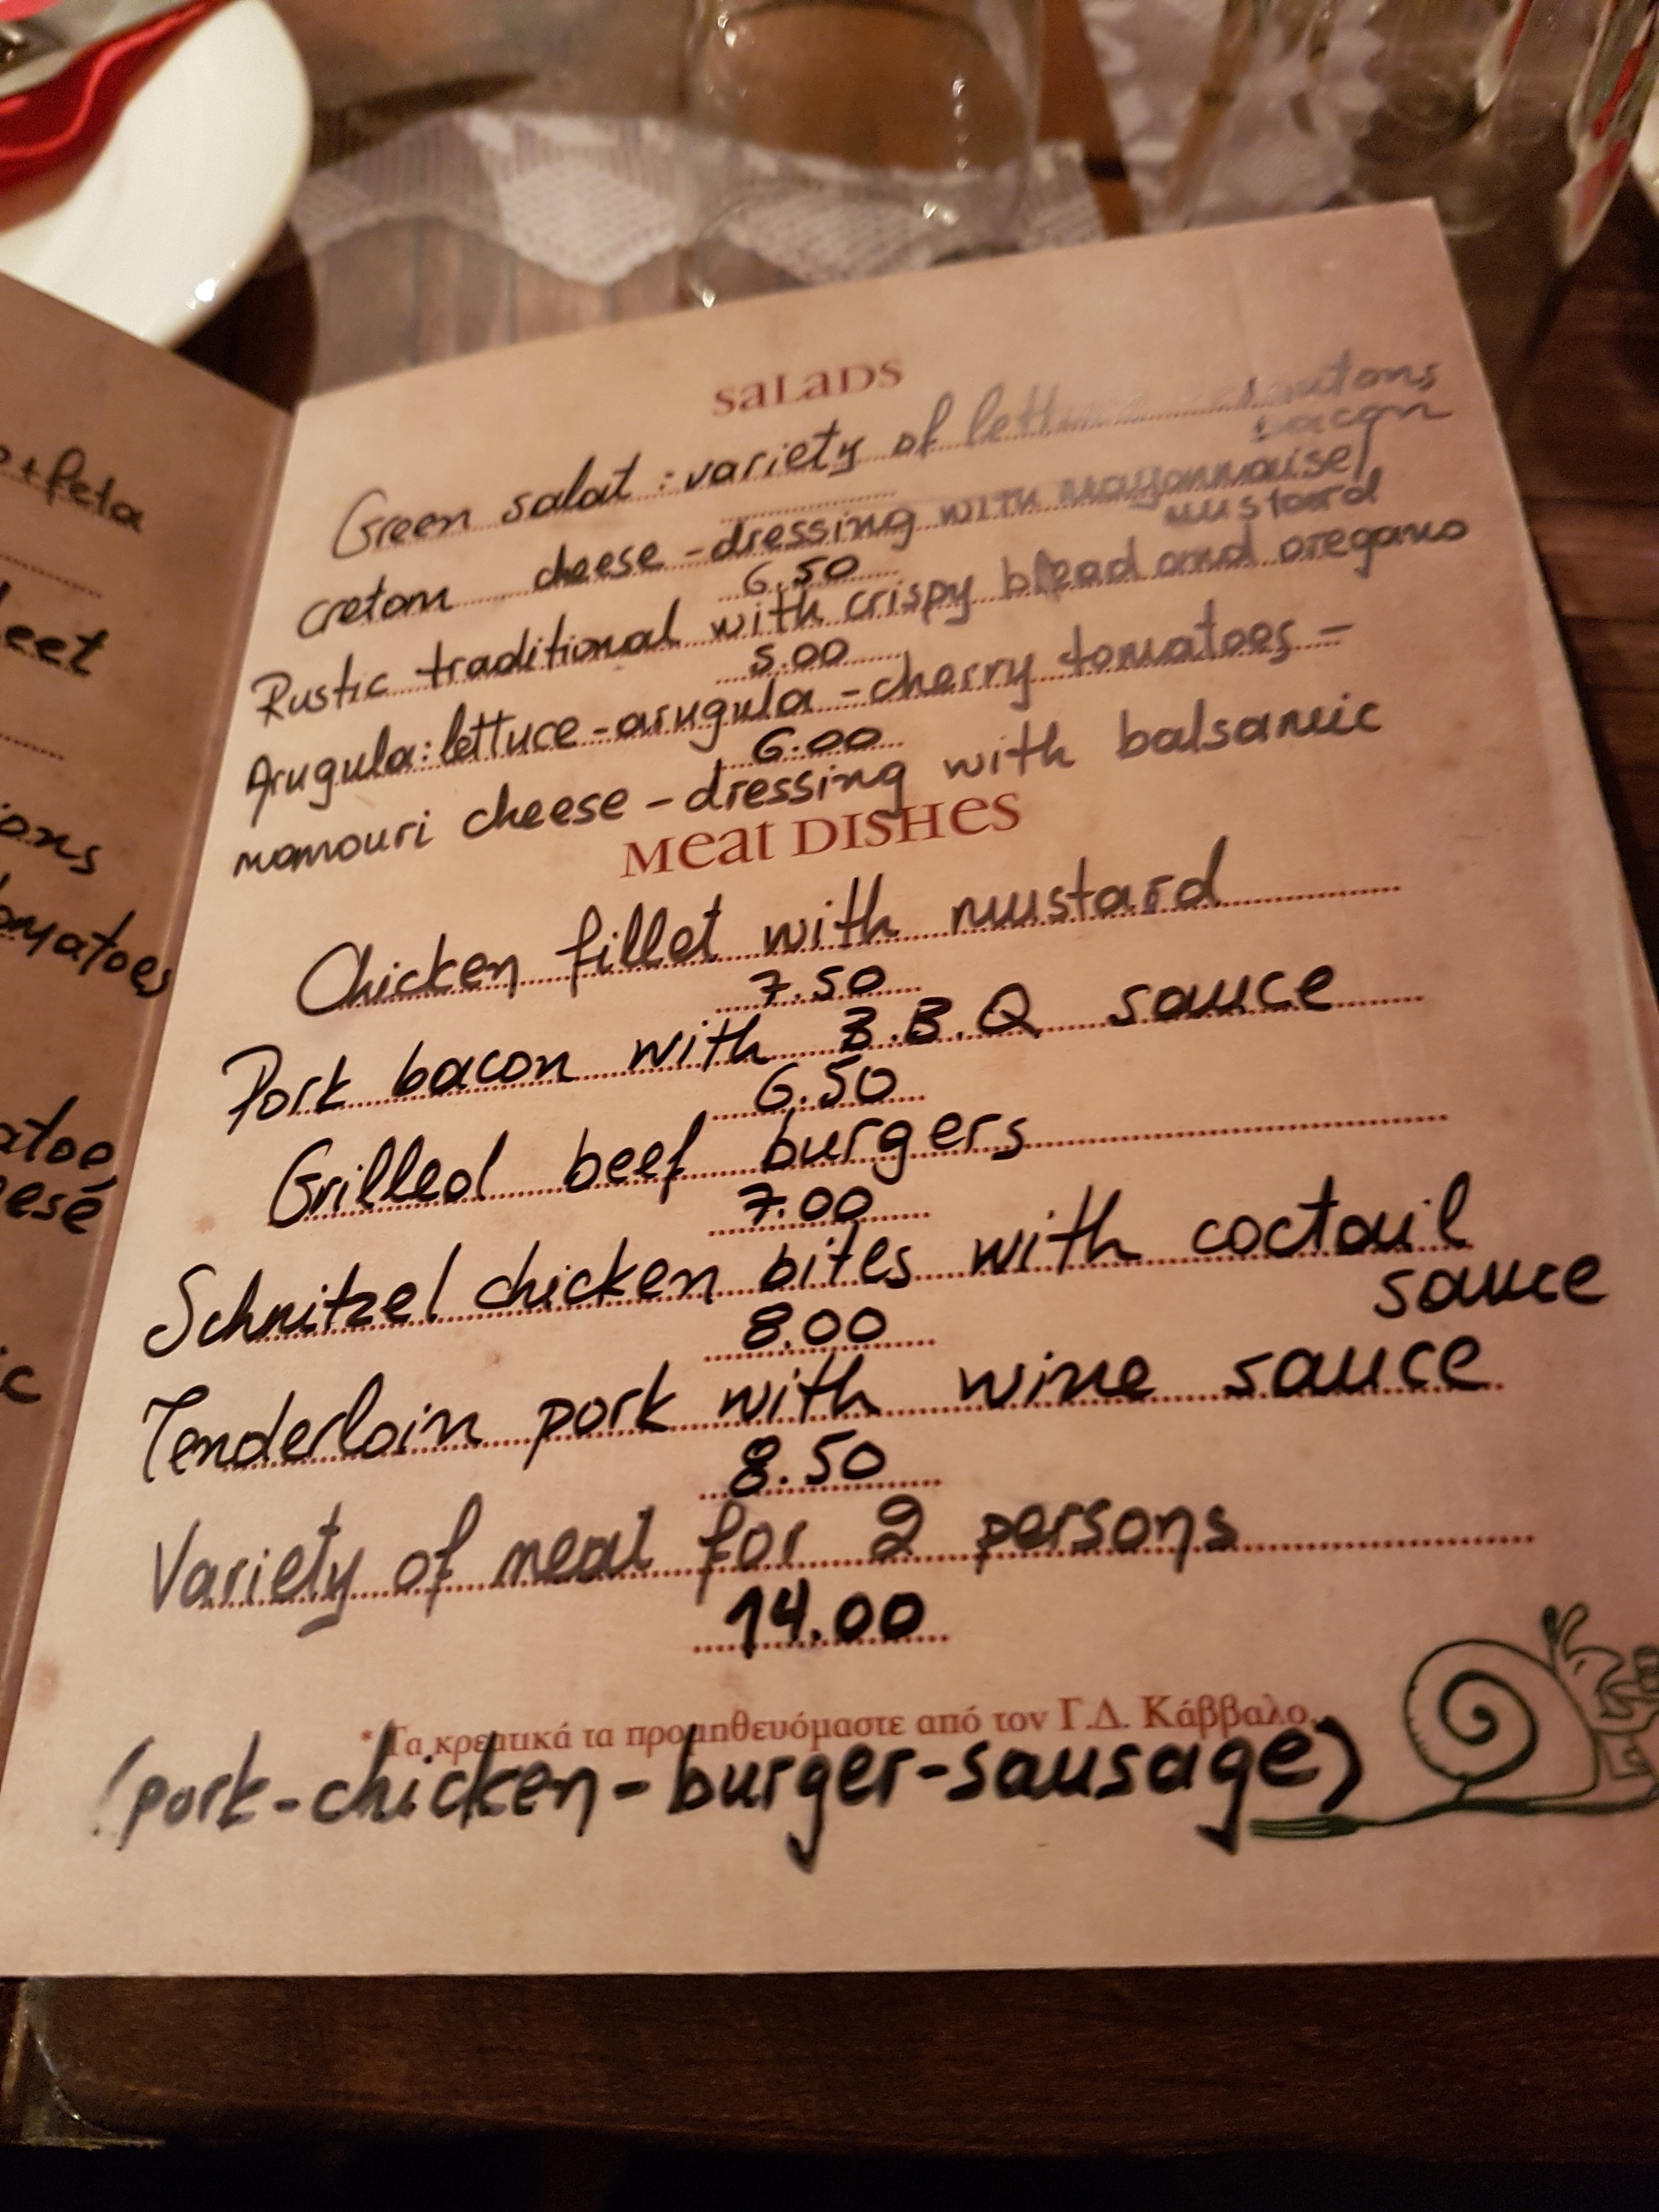 +feta
eet
ons
omatoes
atoe
esé
c
SALADS
Green salat : variety of lettuce croutons
bacon
cretan cheese - dressing with mayonnaise/
mustard
6.50
Rustic traditional with crispy bread and oregano
5.00
Arugula: lettuce - arugula - cherry tomatoes -
6.00
manouri cheese - dressing with balsamic
MEAT DISHES
Chicken fillet with mustard
7.50
Pork bacon with B.B.Q sauce
6.50
Grilled beef burgers
7.00
Schnitzel chicken bites with coctail
sauce
8.00
Tenderloin pork with wine sauce
8.50
Variety of meat for 2 persons
14.00
* Τα κρεατικά τα προμηθευόμαστε από τον Γ.Δ. Κάββαλο.
(pork-chicken-burger-sausage)